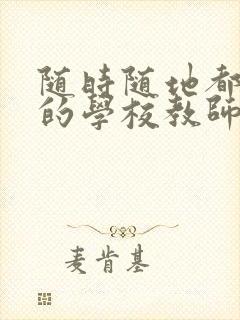 随時随地都
的學校教師
麦肯基